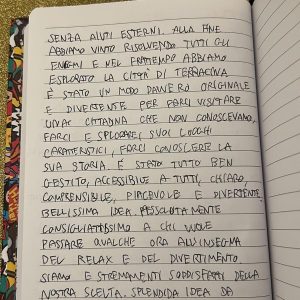 SENZA AIUTI ESTERNI. ALLA FINE
ABBIAMO VINTO RISOLVENDO TUTTI GLI
ENIGMI E NEL FRATTEMPO ABBIAMO
ESPLORATO LA CITTÀ DI TERRACINA
È STATO UN MODO DAVVERO ORIGINALE
E DIVERTENTE PER FARCI VISITARE
UNA CITTADINA CHE NON CONOSCEVAMO,
FARCI ESPLORARE I SUOI LUOGHI
CARATTERISTICI, FARCI CONOSCERE LA
SUA STORIA. È STATO TUTTO BEN
GESTITO, ACCESSIBILE A TUTTI, CHIARO,
COMPRENSIBILE, PIACEVOLE E DIVERTENTE.
BELLISSIMA IDEA. ASSOLUTAMENTE
CONSIGLIATISSIMO A CHI VUOLE
PASSARE QUALCHE ORA ALL'INSEGNA
DEL RELAX E DEL DIVERTIMENTO.
SIAMO ESTREMAMENTE SODDISFATTI DELLA
NOSTRA SCELTA. SPLENDIDA IDEA DA